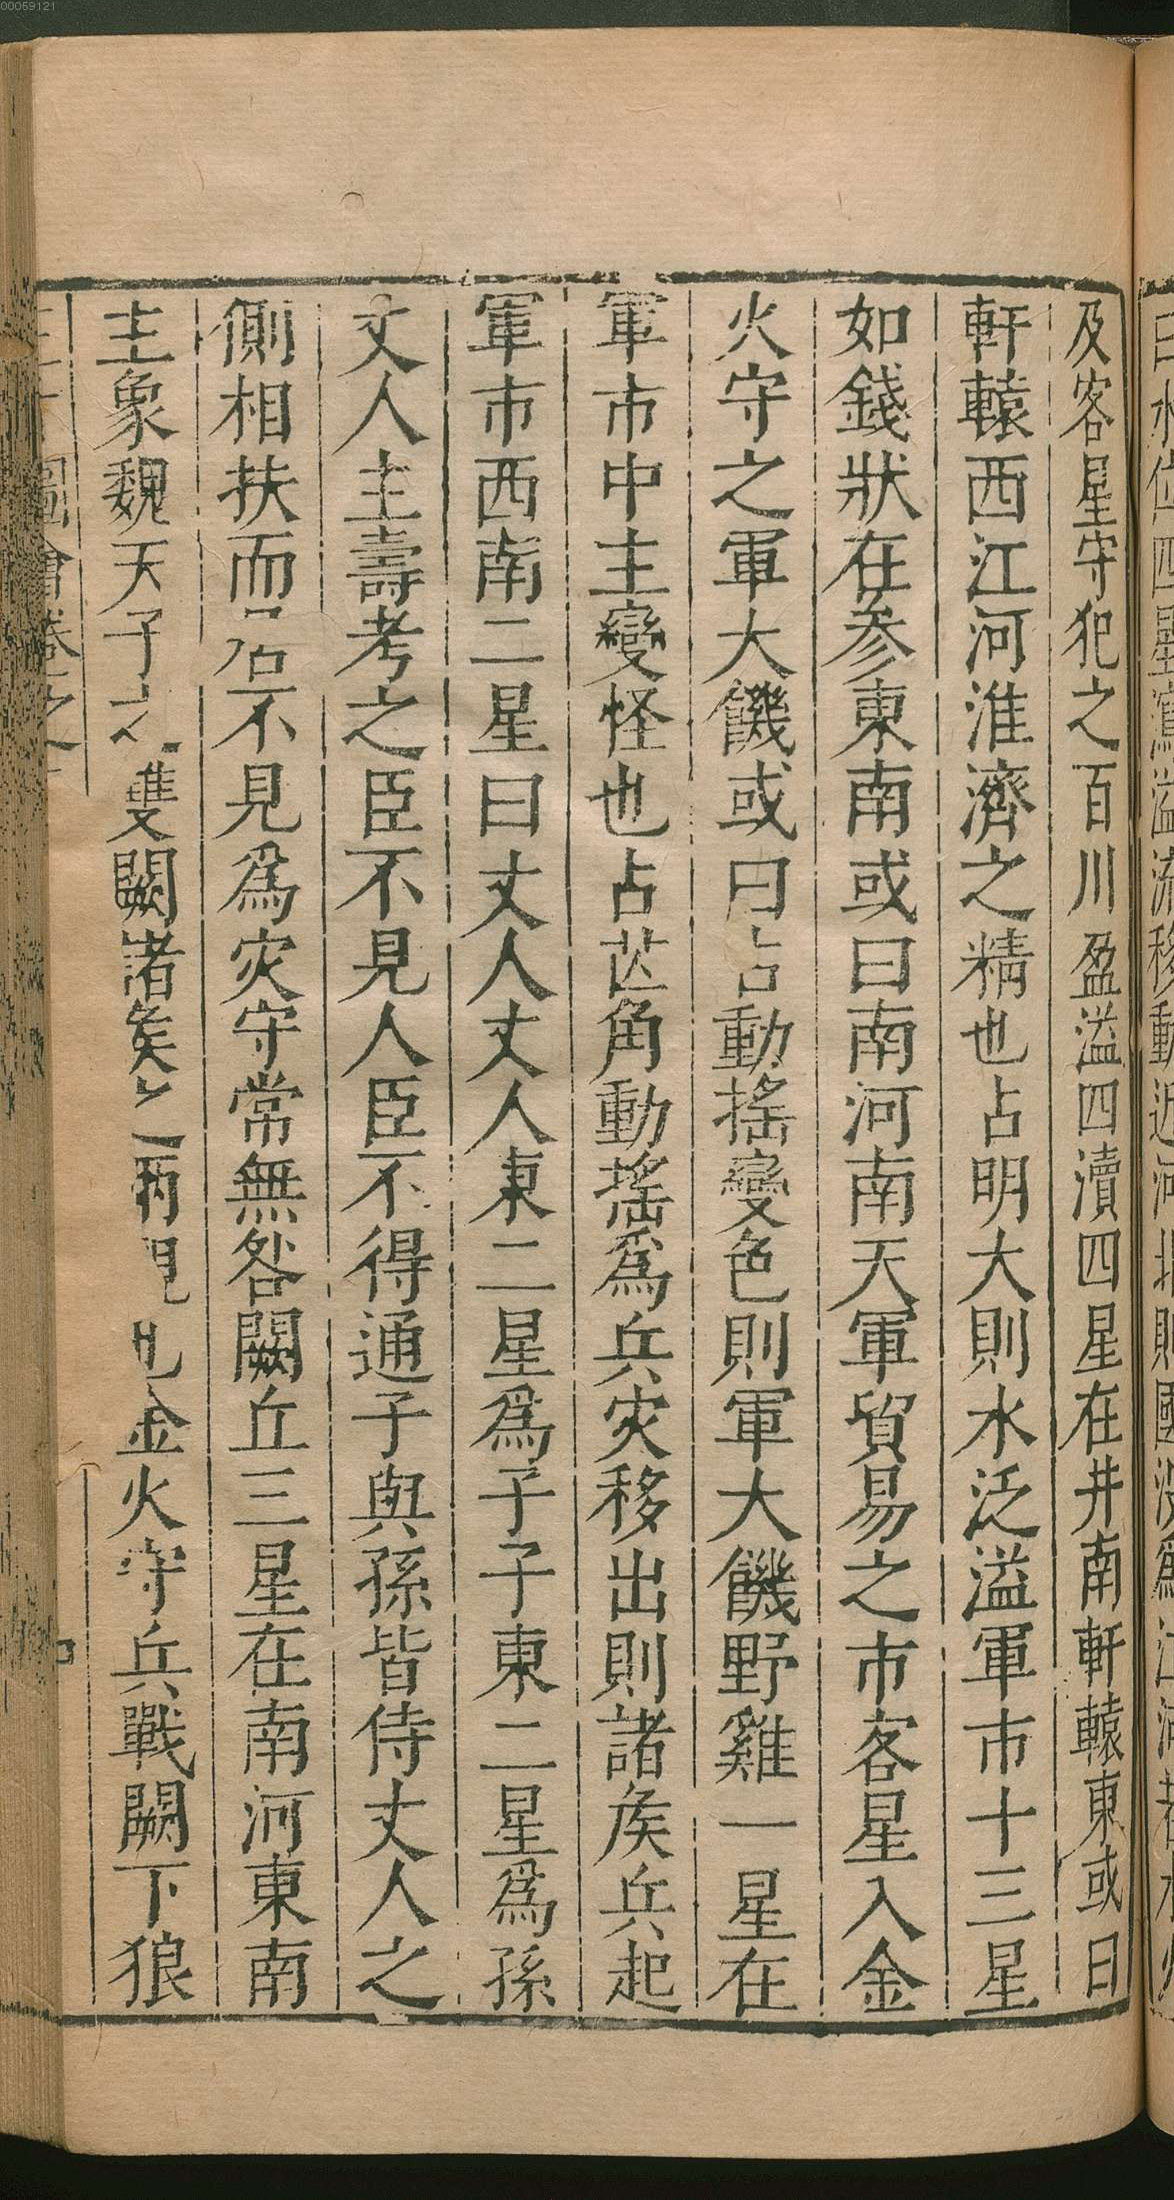 00059121
及客星守犯之百川盈溢四瀆四星在井南軒轅東或曰
軒轅西江河淮濟之精也占明大則水泛溢軍市十三星
如錢狀在参東南或曰南河南天軍貿易之市客星入金
火守之軍大饑或曰占動搖變色則軍大饑野雞一星在
軍市中主變怪也占芒角動搖爲兵灾移出則諸矦兵起
軍市西南二星曰丈人丈人東二星爲子子東二星爲孫
丈人主壽考之臣不見人臣不得通子與孫皆侍丈人之
側相扶而居不見爲灾守常無咎闕丘三星在南河東南
主象魏天子之雙闕諸矦之兩觀也金火守兵戰闕下狼
圖會卷之